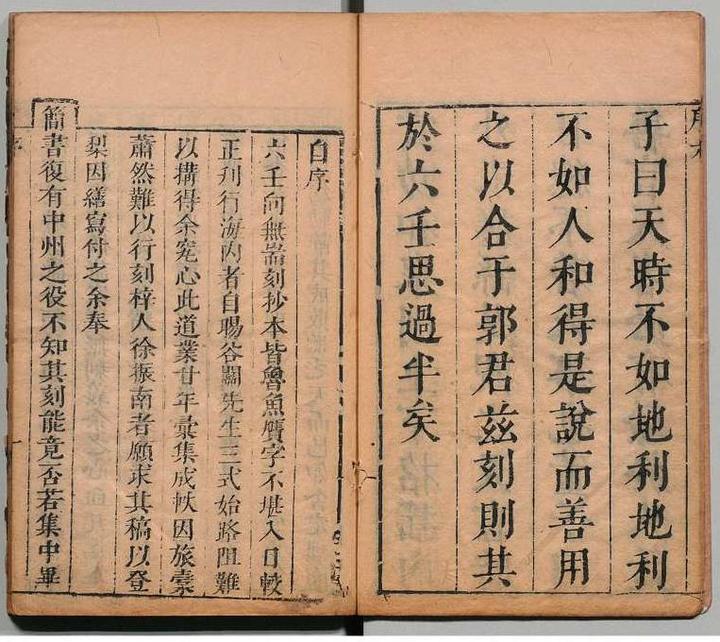 子曰天時不如地利地利
不如人和得是說而善用
之以合于郭君茲刻則其
於六壬思過半矣
自序
六壬向無耑刻抄本皆魯魚贋字不堪入目較
正刋行海內者自賜谷關先生三式始路阻難
以搆得余究心此道業廿年彙集成帙因旅橐
蕭然難以行刻梓人徐振南者願求其稿以登
梨因繕寫付之余奉
簡書復有中州之役不知其刻能竟否若集中畢